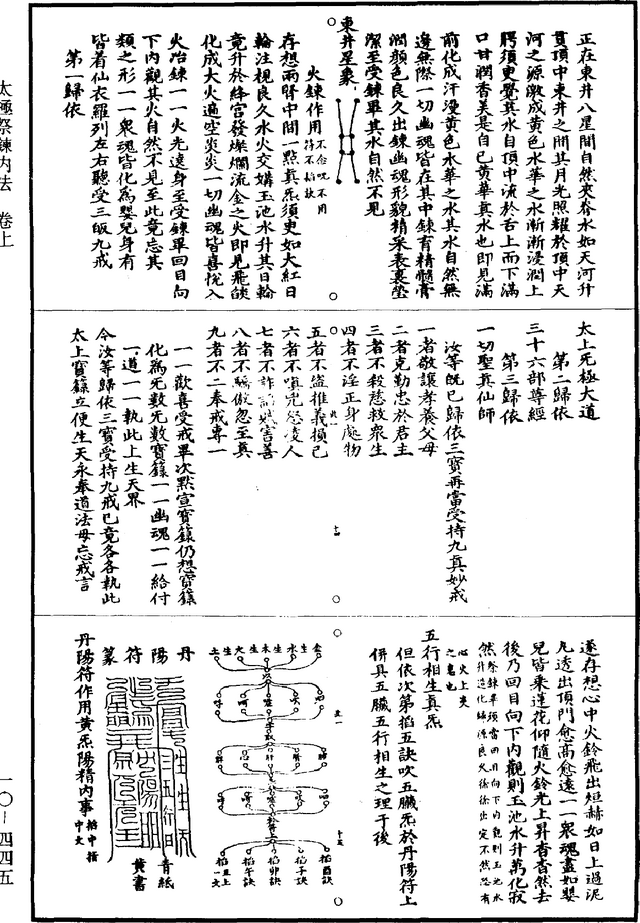 太極祭鍊內法 卷上
一〇—四四五
正在東井八星間自然夾脊水如天河升
貫頂中東井之間其月光照耀於頂中天
河之源激成黃色水華之水漸漸浸潤上
腭須更覺其水自頂中流於舌上而下滿
口甘潤香美是自已黃華真水也即見滿
前化成汗漫黃色水華之水其水自然無
邊無際一切幽魂皆在其中鍊育精髓膏
潤顏色良久出鍊幽魂形貌精采表裏瑩
潔至受鍊畢其水自然不見
東井星象
火鍊作用 不念呪不用符不掐訣
存想兩腎中間一點真炁須臾如大紅日
輪注視良久水火交媾玉池水升其日輪
竟升於絳宮發燦爛流金之火即見飛燄
化成大火遍空炎炎一切幽魂皆喜悅入
火冶鍊一一火光達身至受鍊畢回目向
下內觀其火自然不見至此竟忘其
類之形一一衆魂皆化為嬰兒身有
皆着仙衣羅列左右聽受三皈九戒
第一歸依
太上无極大道
第二歸依
三十六部尊經
第三歸依
一切聖真仙師
汝等既已歸依三寶再當受持九真妙戒
一者敬讓孝養父母
二者克勤忠於君主
三者不殺慈救衆生
四者不淫正身處物
五者不盜推義損己
六者不嗔兇怒凌人
七者不詐謟賊害善
八者不驕傲忽至真
九者不二奉戒專一
一一歡喜受戒畢次默宣寶籙仍想寶籙
化為无數无數寶籙一一幽魂一一給付
一道一一執此上生天界
今汝等歸依三寶受持九戒已竟各各執此
太上寶籙立便生天永奉道法毋忘戒言
十四
遂存想心中火鈴飛出烜赫如日上過泥
丸透出頂門愈高愈遠一一衆魂盡如嬰
兒皆乘蓮花仰隨火鈴光上昇杳杳然去
後乃回目向下內觀則玉池水升萬化寂
然 祭鍊畢須當回目向下內觀則玉池水升造化歸源良久徐徐出定不然恐有心火上炎之患也
五行相生真炁
但依次第掐五訣吹五臟炁於丹陽符上
併具五臟五行相生之理于後
金生水生木生火生土
肺 腎 肝 心 脾
掐酉訣
掐子訣
掐卯訣
掐午訣
掐丑上一文
十五
丹陽符篆
青紙
黃書
丹陽符作用黃炁陽精內事 掐中指中文